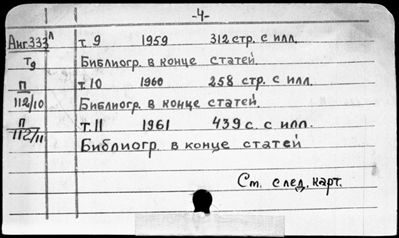 -4-
Анг333л т. 9 1959 312 стр. с илл.
т9 Библиогр. в конце статей.
П т. 10 1960 258 стр. с илл.
112/10 Библиогр. в конце статей.
П т. 11 1961 439 с. с илл.
112/11 Библиогр. в конце статей
См. след. карт.